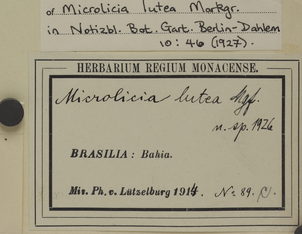 of Microlicia lutea Markgr.
in Notizbl. Bot. Gart. Berlin-Dahlem
10: 46 (1927).
HERBARIUM REGIUM MONACENSE.
Microlicia lutea Mgf.
n. sp. 1926
BRASILIA: Bahia.
Mis. Ph. v. Lützelburg 1914. No 89.